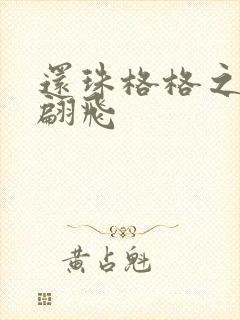 還珠格格之
翩飛
黄占魁